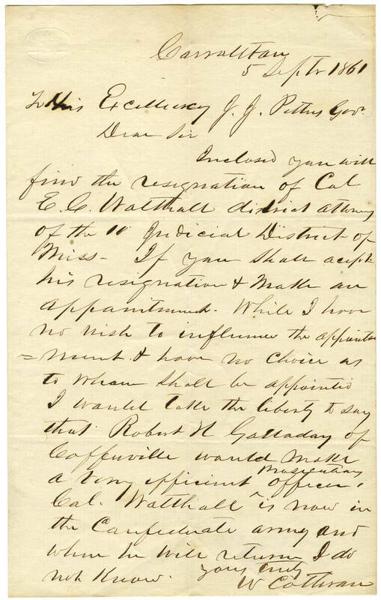 Carrollton
5 Septr 1861
To His Excellency J. J. Pettus Govr
Dear Sir
Inclosed you will
find the resignation of Col
E. C. Walthall district attorney
of the 10 Judicial District of
Miss - If you shall acept
his resignation & make an
appointment. While I have
no wish to influence the appoint
= ment & have no choice as
to whom shall be appointed
I would take the liberty to say
that Robert H Golladay of
Coffeeville would make
a very efficient prosecuting officer.
Col. Walthall is now in
the Confederate army and
when he will return I do
not know.
yours truly
W Cothran